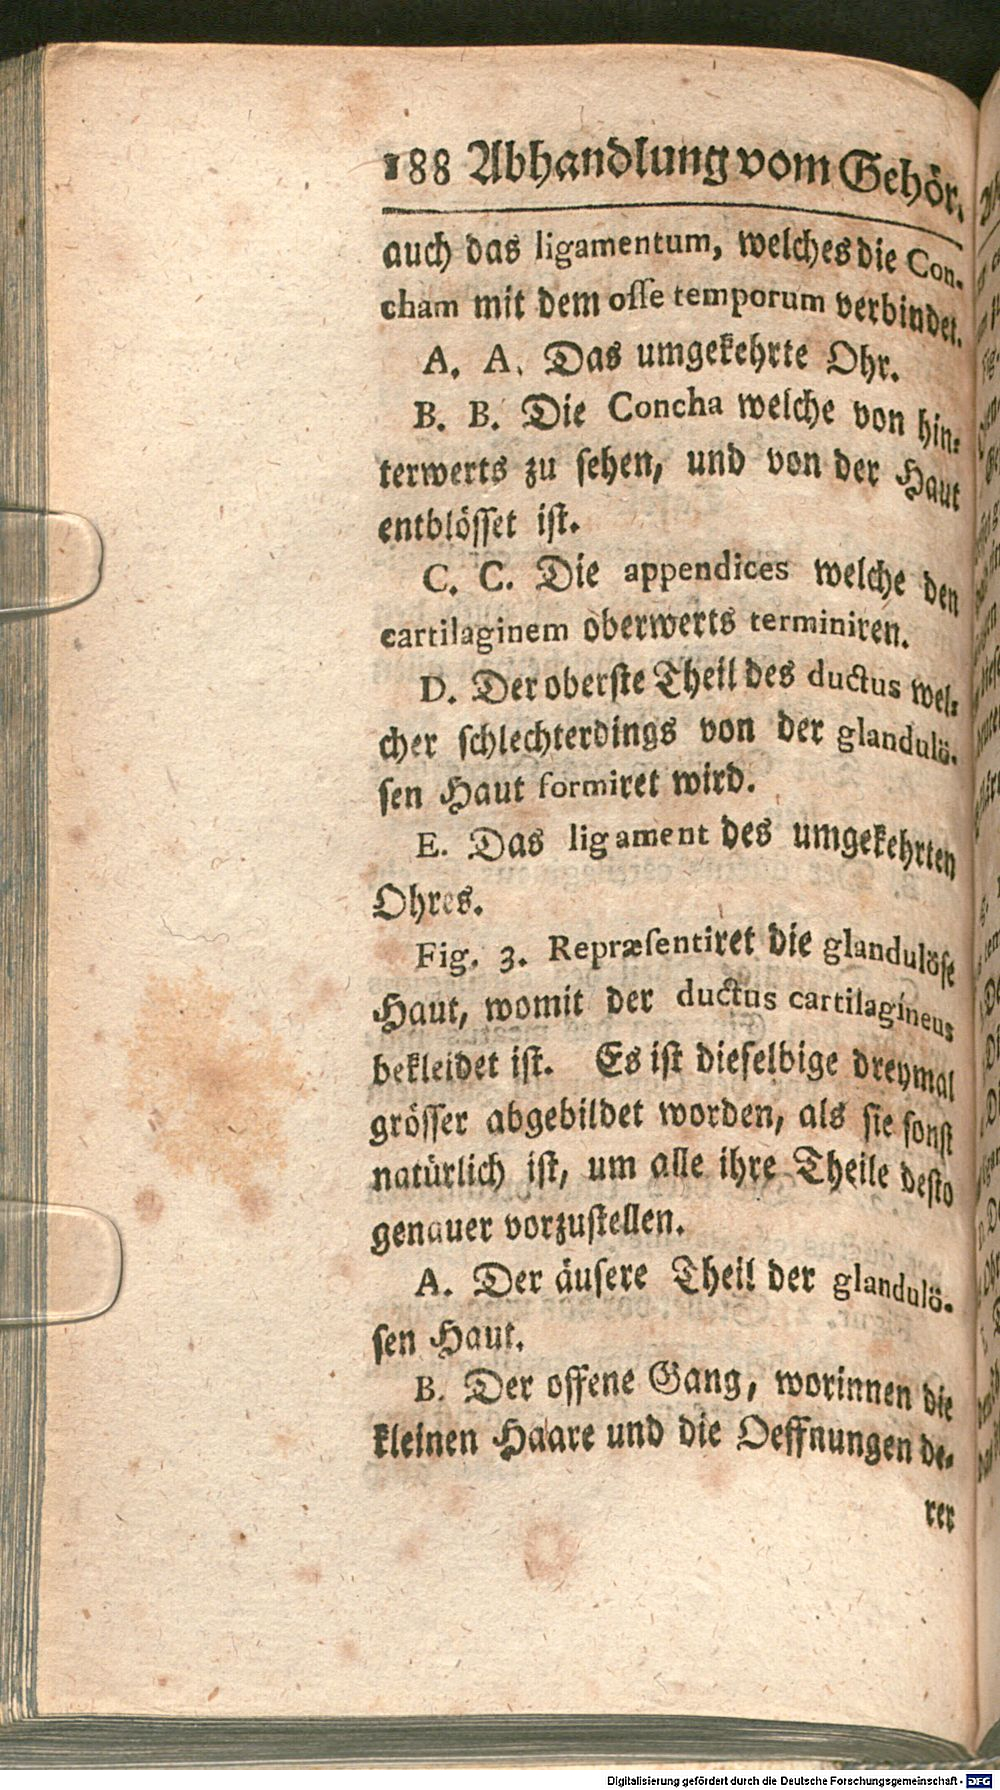 188 Abhandlung vom Gehör.
auch das ligamentum, welches die Con-
cham mit dem osse temporum verbindet.
A. A. Das umgekehrte Ohr.
B. B. Die Concha welche von hin-
terwerts zu sehen, und von der Haut
entblösset ist.
C. C. Die appendices welche den
cartilaginem oberwerts terminiren.
D. Der oberste Theil des ductus wel-
cher schlechterdings von der glandulö-
sen Haut formiret wird.
E. Das ligament des umgekehrten
Ohres.
Fig. 3. Repræsentiret die glandulöse
Haut, womit der ductus cartilagineus
bekleidet ist. Es ist dieselbige dreymal
grösser abgebildet worden, als sie sonst
natürlich ist, um alle ihre Theile desto
genauer vorzustellen.
A. Der äusere Theil der glandulö-
sen Haut.
B. Der offene Gang, worinnen die
kleinen Haare und die Oeffnungen de-
rer
Digitalisierung gefördert durch die Deutsche Forschungsgemeinschaft - DFG